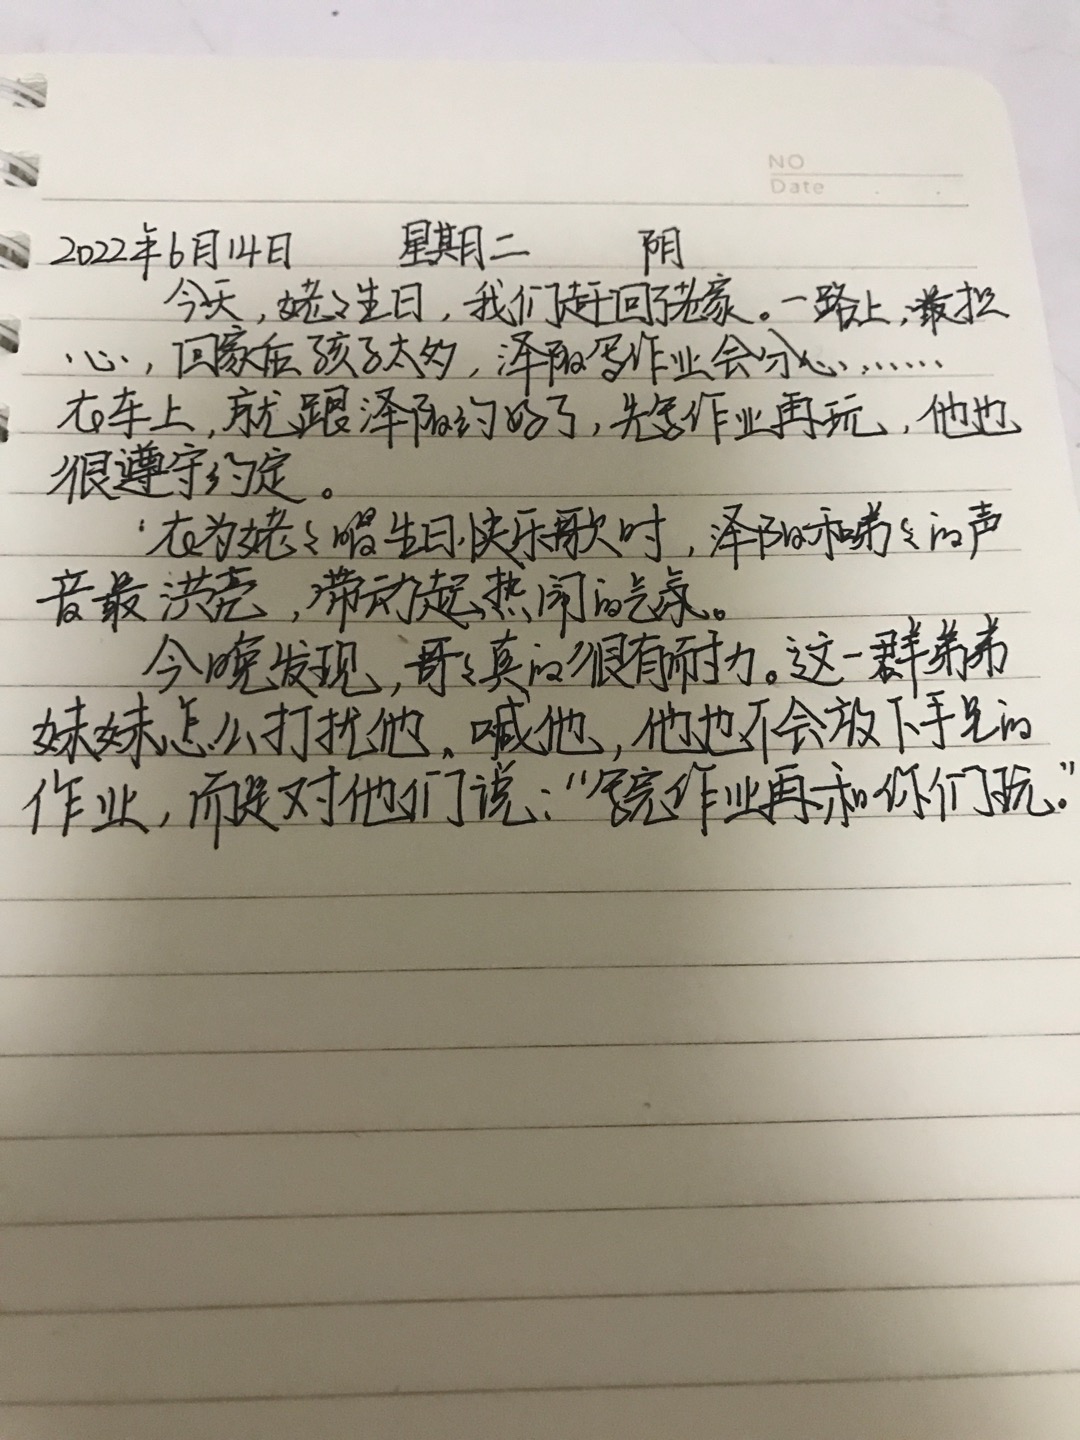 NO
Date
2022年6月14日 星期二 阴
今天,姥々生日,我们赶回了老家。一路上,最担
心,回家后孩子太多,泽阳写作业会分心……
在车上,就跟泽阳约好了,先写作业再玩,他也
很遵守约定。
在为姥々唱生日快乐歌时,泽阳和弟々的声
音最洪亮,带动起热闹的气氛。
今晚发现,哥々真的很有耐力。这一群弟弟
妹妹怎么打扰他、喊他,他也不会放下手里的
作业,而是对他们说:“写完作业再和你们玩。”